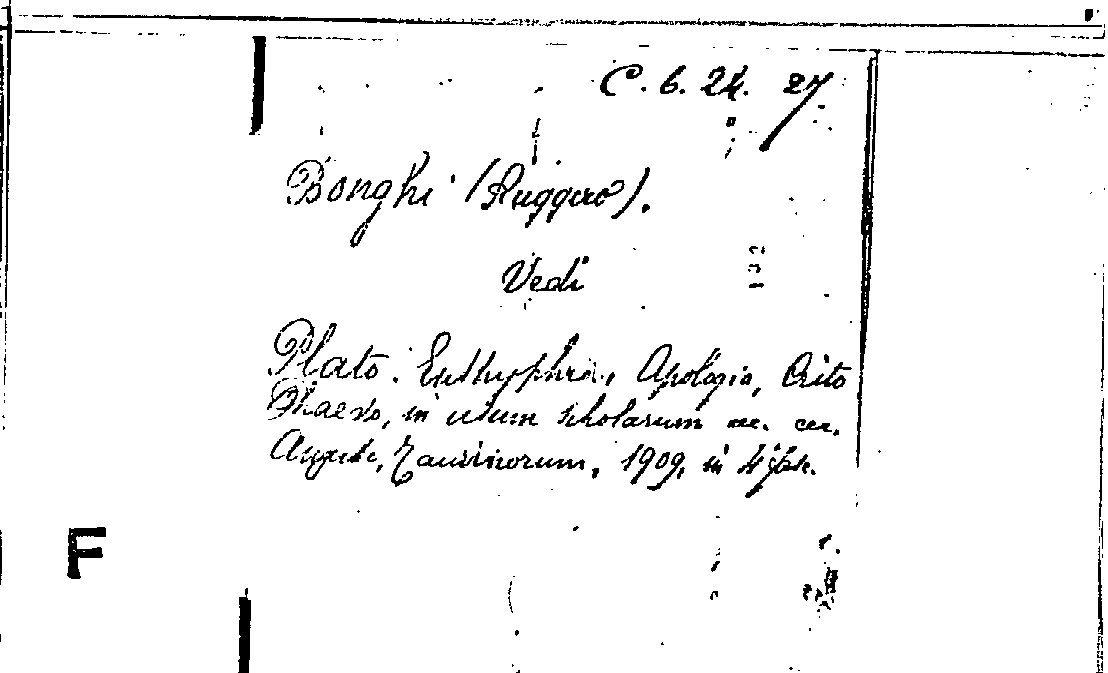 C. 6. 24. 27
Bonghi (Ruggero).
Vedi
Plato. Euthyphro, Apologia, Crito
Phaedo, in usum scholarum ec. ec.
Taurinorum, 1909, in 4°
F